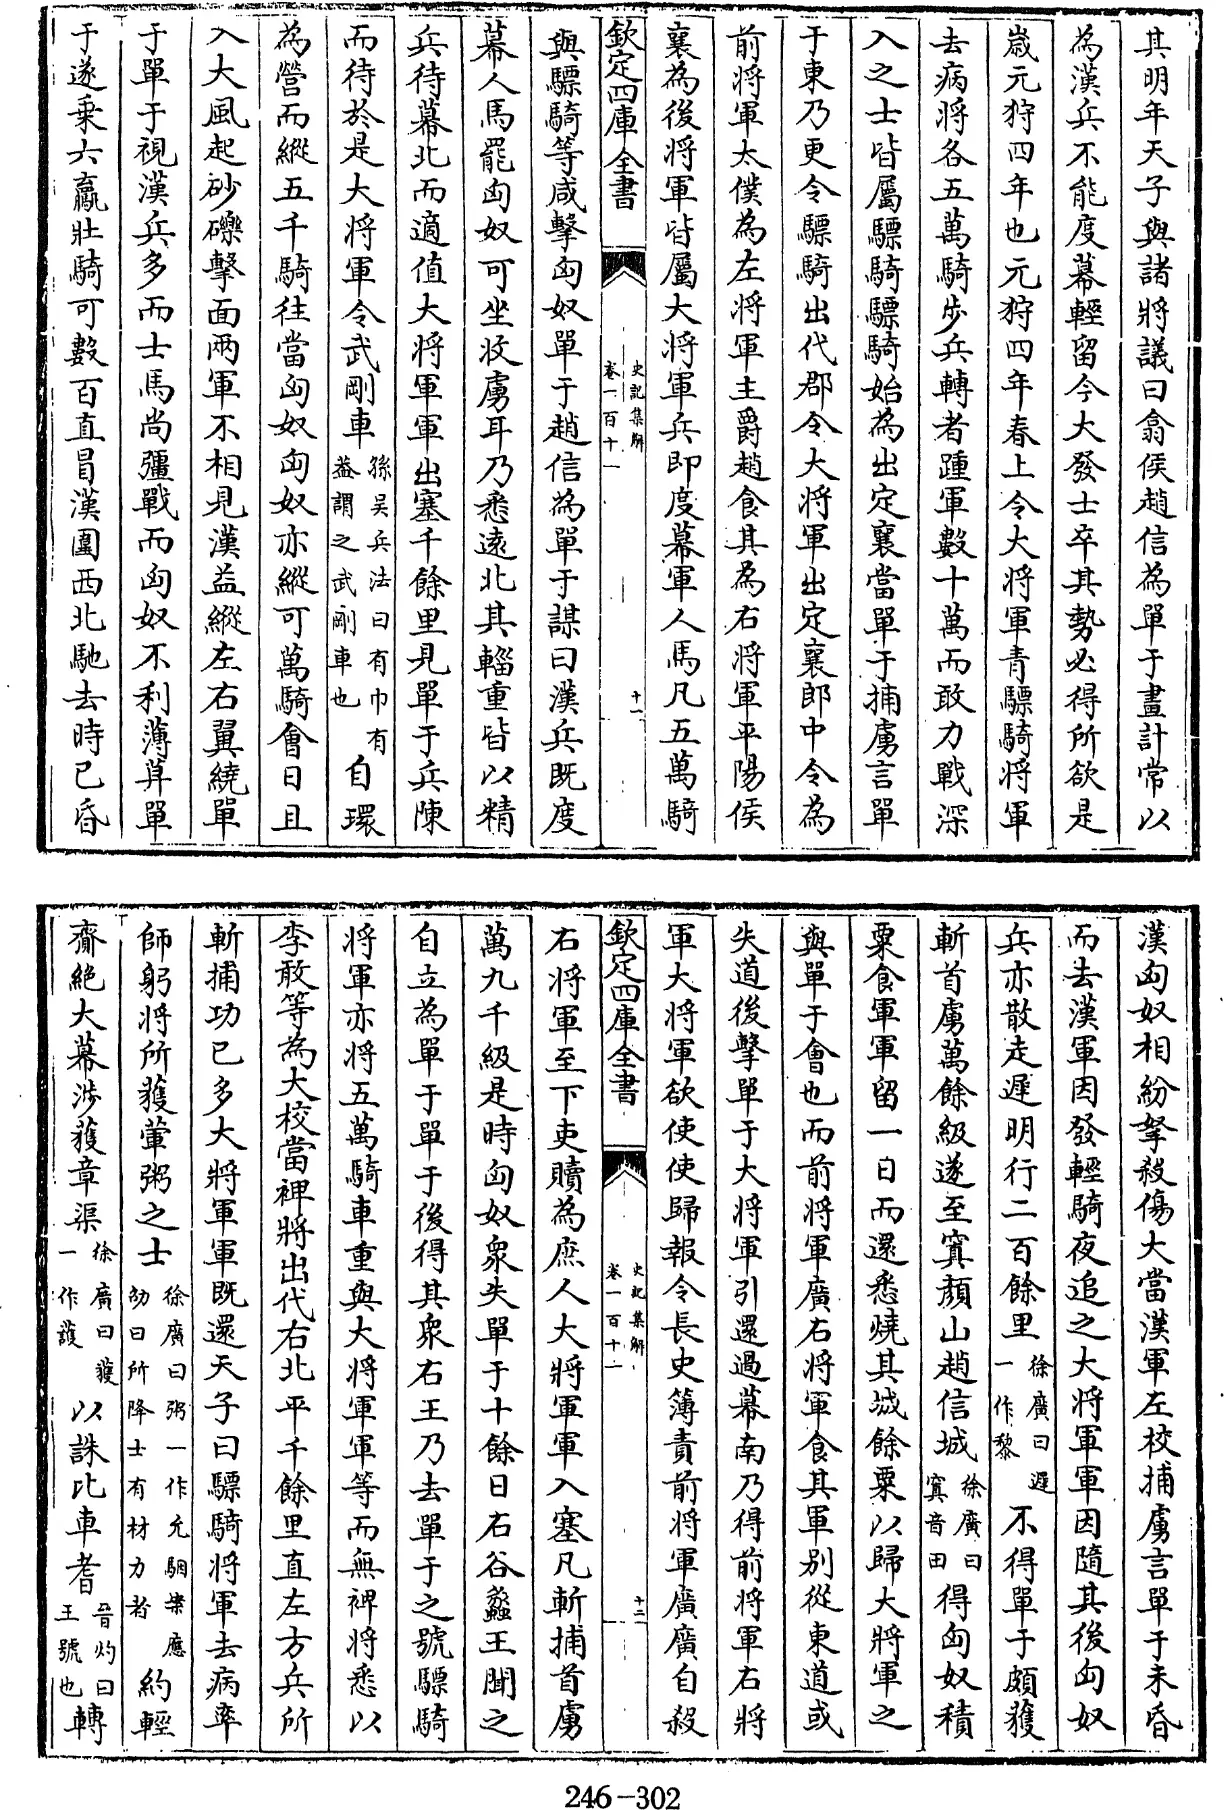 其明年天子與諸將議曰翕侯趙信為單于畫計常以
為漢兵不能度幕輕留今大發士卒其勢必得所欲是
歲元狩四年也元狩四年春上令大將軍青驃騎將軍
去病將各五萬騎步兵轉者踵軍數十萬而敢力戰深
入之士皆屬驃騎驃騎始為出定襄當單于捕虜言單
于東乃更令驃騎出代郡令大將軍出定襄郎中令為
前將軍太僕為左將軍主爵趙食其為右將軍平陽侯
襄為後將軍皆屬大將軍兵即度幕軍人馬凡五萬騎
欽定四庫全書
史記集解
卷一百十一
十一
與驃騎等咸擊匈奴單于趙信為單于謀曰漢兵既度
幕人馬罷匈奴可坐收虜耳乃悉遠北其輜重皆以精
兵待幕北而適值大將軍軍出塞千餘里見單于兵陳
而待於是大將軍令武剛車
孫吳兵法曰有巾有
葢謂之武剛車也
自環
為營而縱五千騎往當匈奴匈奴亦縱可萬騎會日且
入大風起砂礫擊面兩軍不相見漢益縱左右翼繞單
于單于視漢兵多而士馬尚彊戰而匈奴不利薄暮單
于遂乗六驘壯騎可數百直冒漢圍西北馳去時已昏
漢匈奴相紛挐殺傷大當漢軍左校捕虜言單于未昏
而去漢軍因發輕騎夜追之大將軍軍因隨其後匈奴
兵亦散走遲明行二百餘里
徐廣曰遲
一作黎
不得單于頗獲
斬首虜萬餘級遂至窴顏山趙信城
徐廣曰
窴音田
得匈奴積
粟食軍軍留一日而還悉燒其城餘粟以歸大將軍之
與單于會也而前將軍廣右將軍食其軍别從東道或
失道後擊單于大將軍引還過幕南乃得前將軍右將
軍大將軍欲使使歸報令長史簿責前將軍廣廣自殺
欽定四庫全書
史記集解
卷一百十一
十二
右將軍至下吏贖為庶人大將軍軍入塞凡斬捕首虜
萬九千級是時匈奴衆失單于十餘日右谷蠡王聞之
自立為單于單于後得其衆右王乃去單于之號驃騎
將軍亦將五萬騎車重與大將軍軍等而無裨將悉以
李敢等為大校當裨將出代右北平千餘里直左方兵所
斬捕功已多大將軍軍既還天子曰驃騎將軍去病率
師躬將所獲葷粥之士
徐廣曰粥一作允駰案應
劭曰所降士有材力者
約輕
齎絕大幕涉獲章渠
徐廣曰獲
一作護
以誅比車耆
晉灼曰
王號也
轉
246-302